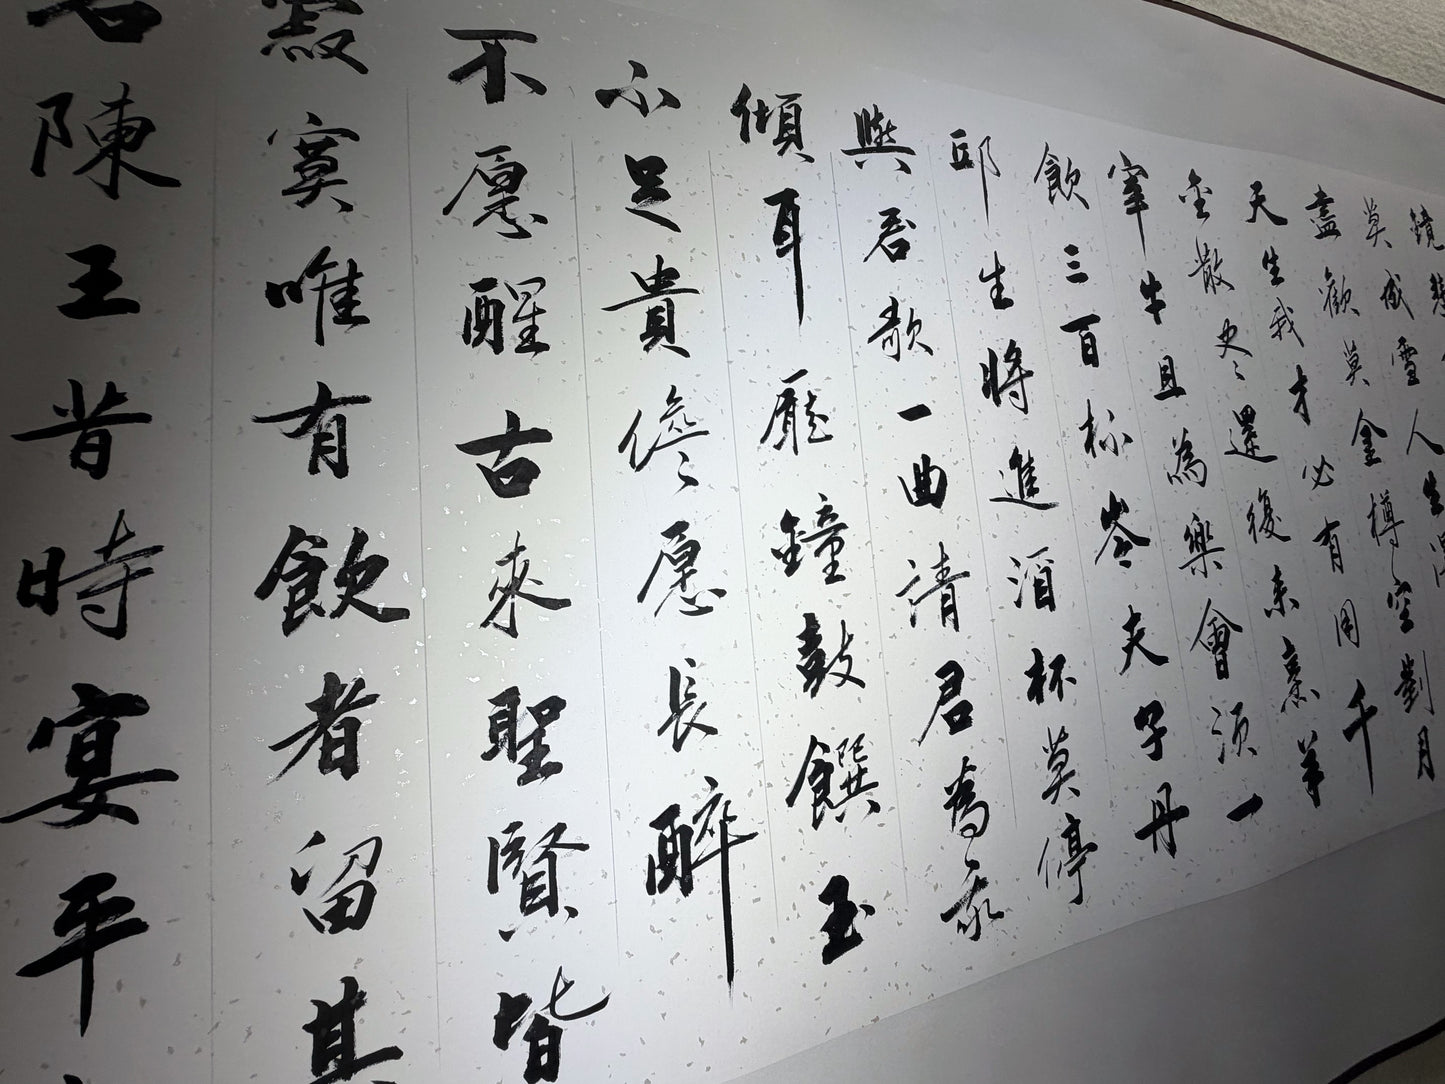 鏡悲
莫成雪人生得
盡歡莫金樽空對月
天生我才必有用千
金散尽還復来烹羊
宰牛且為樂會須一
飲三百杯岑夫子丹
邱生將進酒杯莫停
與君歌一曲請君為我
傾耳聽鐘鼓饌玉
不足貴但愿長醉
不愿醒古來聖賢皆
寂寞唯有飲者留其
名陳王昔時宴平